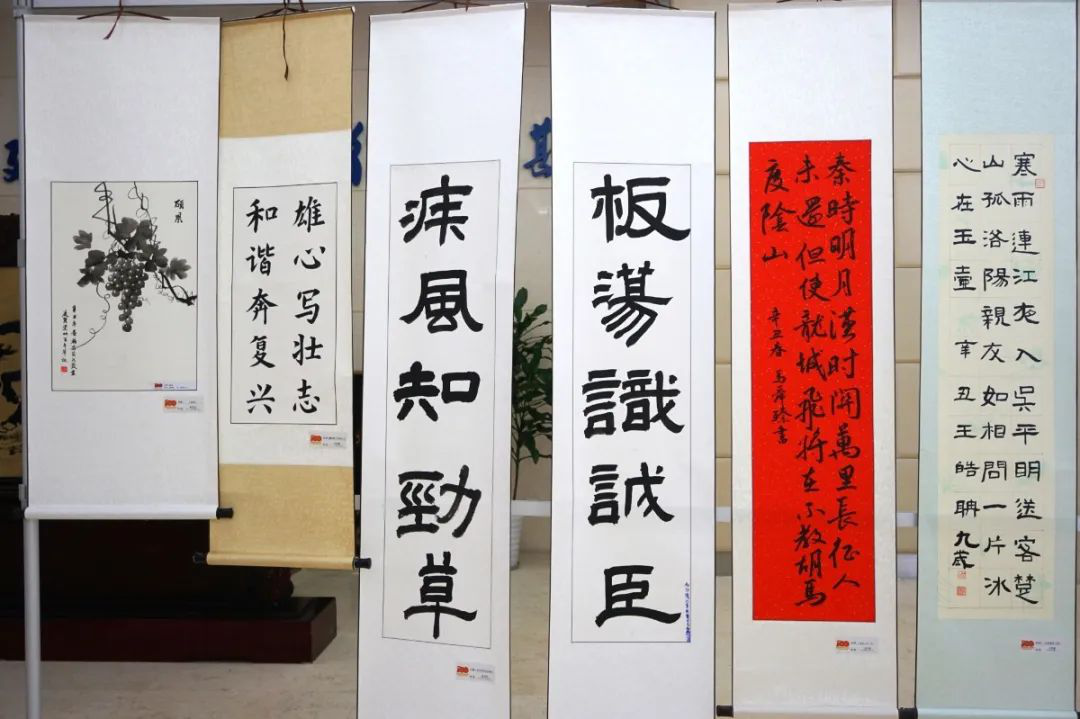 碩果
雄心写壮志
和谐奔复兴
疾風知勁草
板蕩識誠臣
秦時明月漢时関萬里長征人
未還但使龍城飛将在不教胡馬
度陰山
辛丑春
寒雨連江夜入吳平明送客楚
山孤洛陽親友如相問一片冰
心在玉壺 辛丑王皓聃九歲